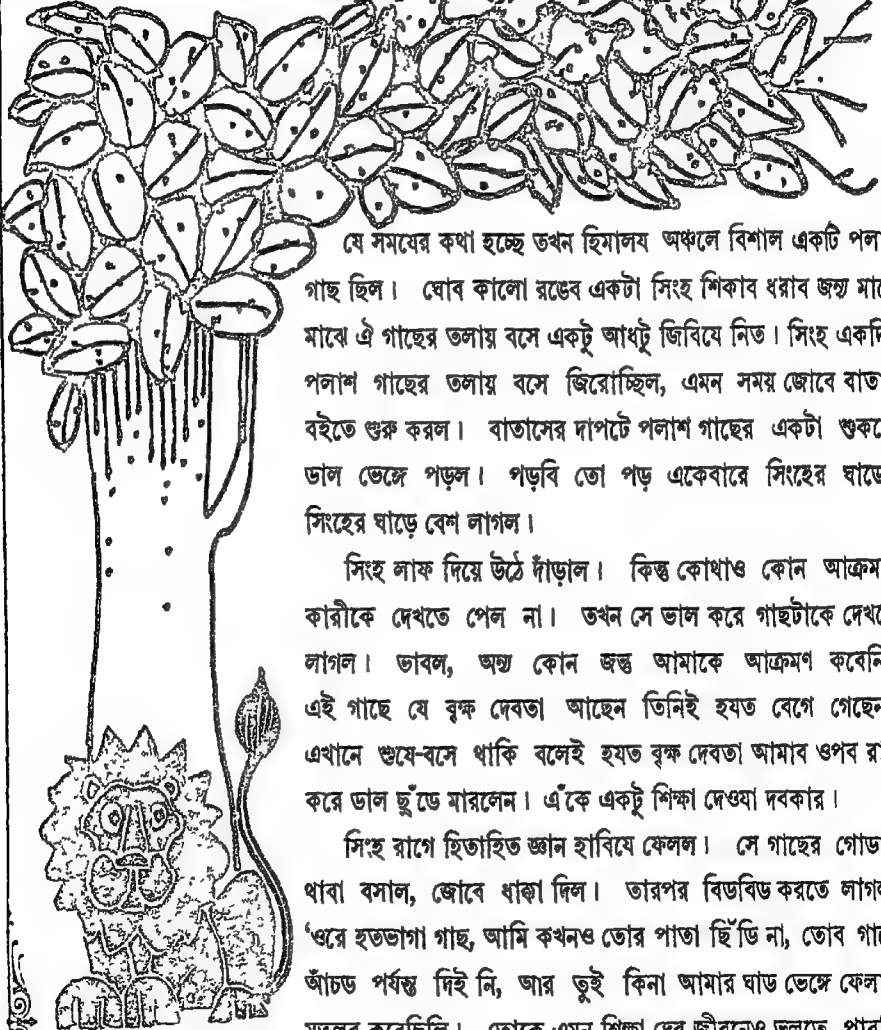 যে সমযের কথা হচ্ছে তখন হিমালয অঞ্চলে বিশাল একটি
গাছ ছিল। ঘোব কালো রঙেব একটা সিংহ শিকাব ধরাব জন্য
মাঝে ঐ গাছের তলায় বসে একটু আধটু জিবিযে নিত। সিংহ
পলাশ গাছের তলায় বসে জিরোচ্ছিল, এমন সময় জোবে
বইতে শুরু করল। বাতাসের দাপটে পলাশ গাছের একটা
ডাল ভেঙ্গে পড়ল। পড়বি তো পড় একেবারে সিংহের
সিংহের ঘাড়ে বেশ লাগল।
সিংহ লাফ দিয়ে উঠে দাঁড়াল। কিন্তু কোথাও কোন
কারীকে দেখতে পেল না। তখন সে ভাল করে গাছটাকে
লাগল। ভাবল, অন্য কোন জন্তু আমাকে আক্রমণ কবেনি
এই গাছে যে বৃক্ষ দেবতা আছেন তিনিই হযত বেগে গেছেন
এখানে শুযে-বসে থাকি বলেই হযত বৃক্ষ দেবতা আমাব ওপব
করে ডাল ছুঁডে মারলেন। এঁকে একটু শিক্ষা দেওযা দবকার।
সিংহ রাগে হিতাহিত জ্ঞান হাবিযে ফেলল। সে গাছের
থাবা বসাল, জোবে ধাক্কা দিল। তারপর বিডবিড করতে
‘ওরে হতভাগা গাছ, আমি কখনও তোর পাতা ছিঁডি না, তোব
আঁচড পর্যন্ত দিই নি, আর তুই কিনা আমার ঘাড ভেঙ্গে